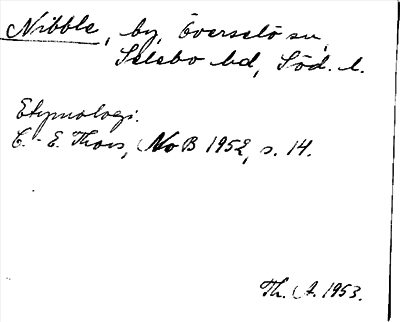 Nibble, by, Överselö sn,
Selebo hd, Söd. l.
Etymologi:
C.-E. Thors, NoB 1952, s. 14.
Th. A. 1953.